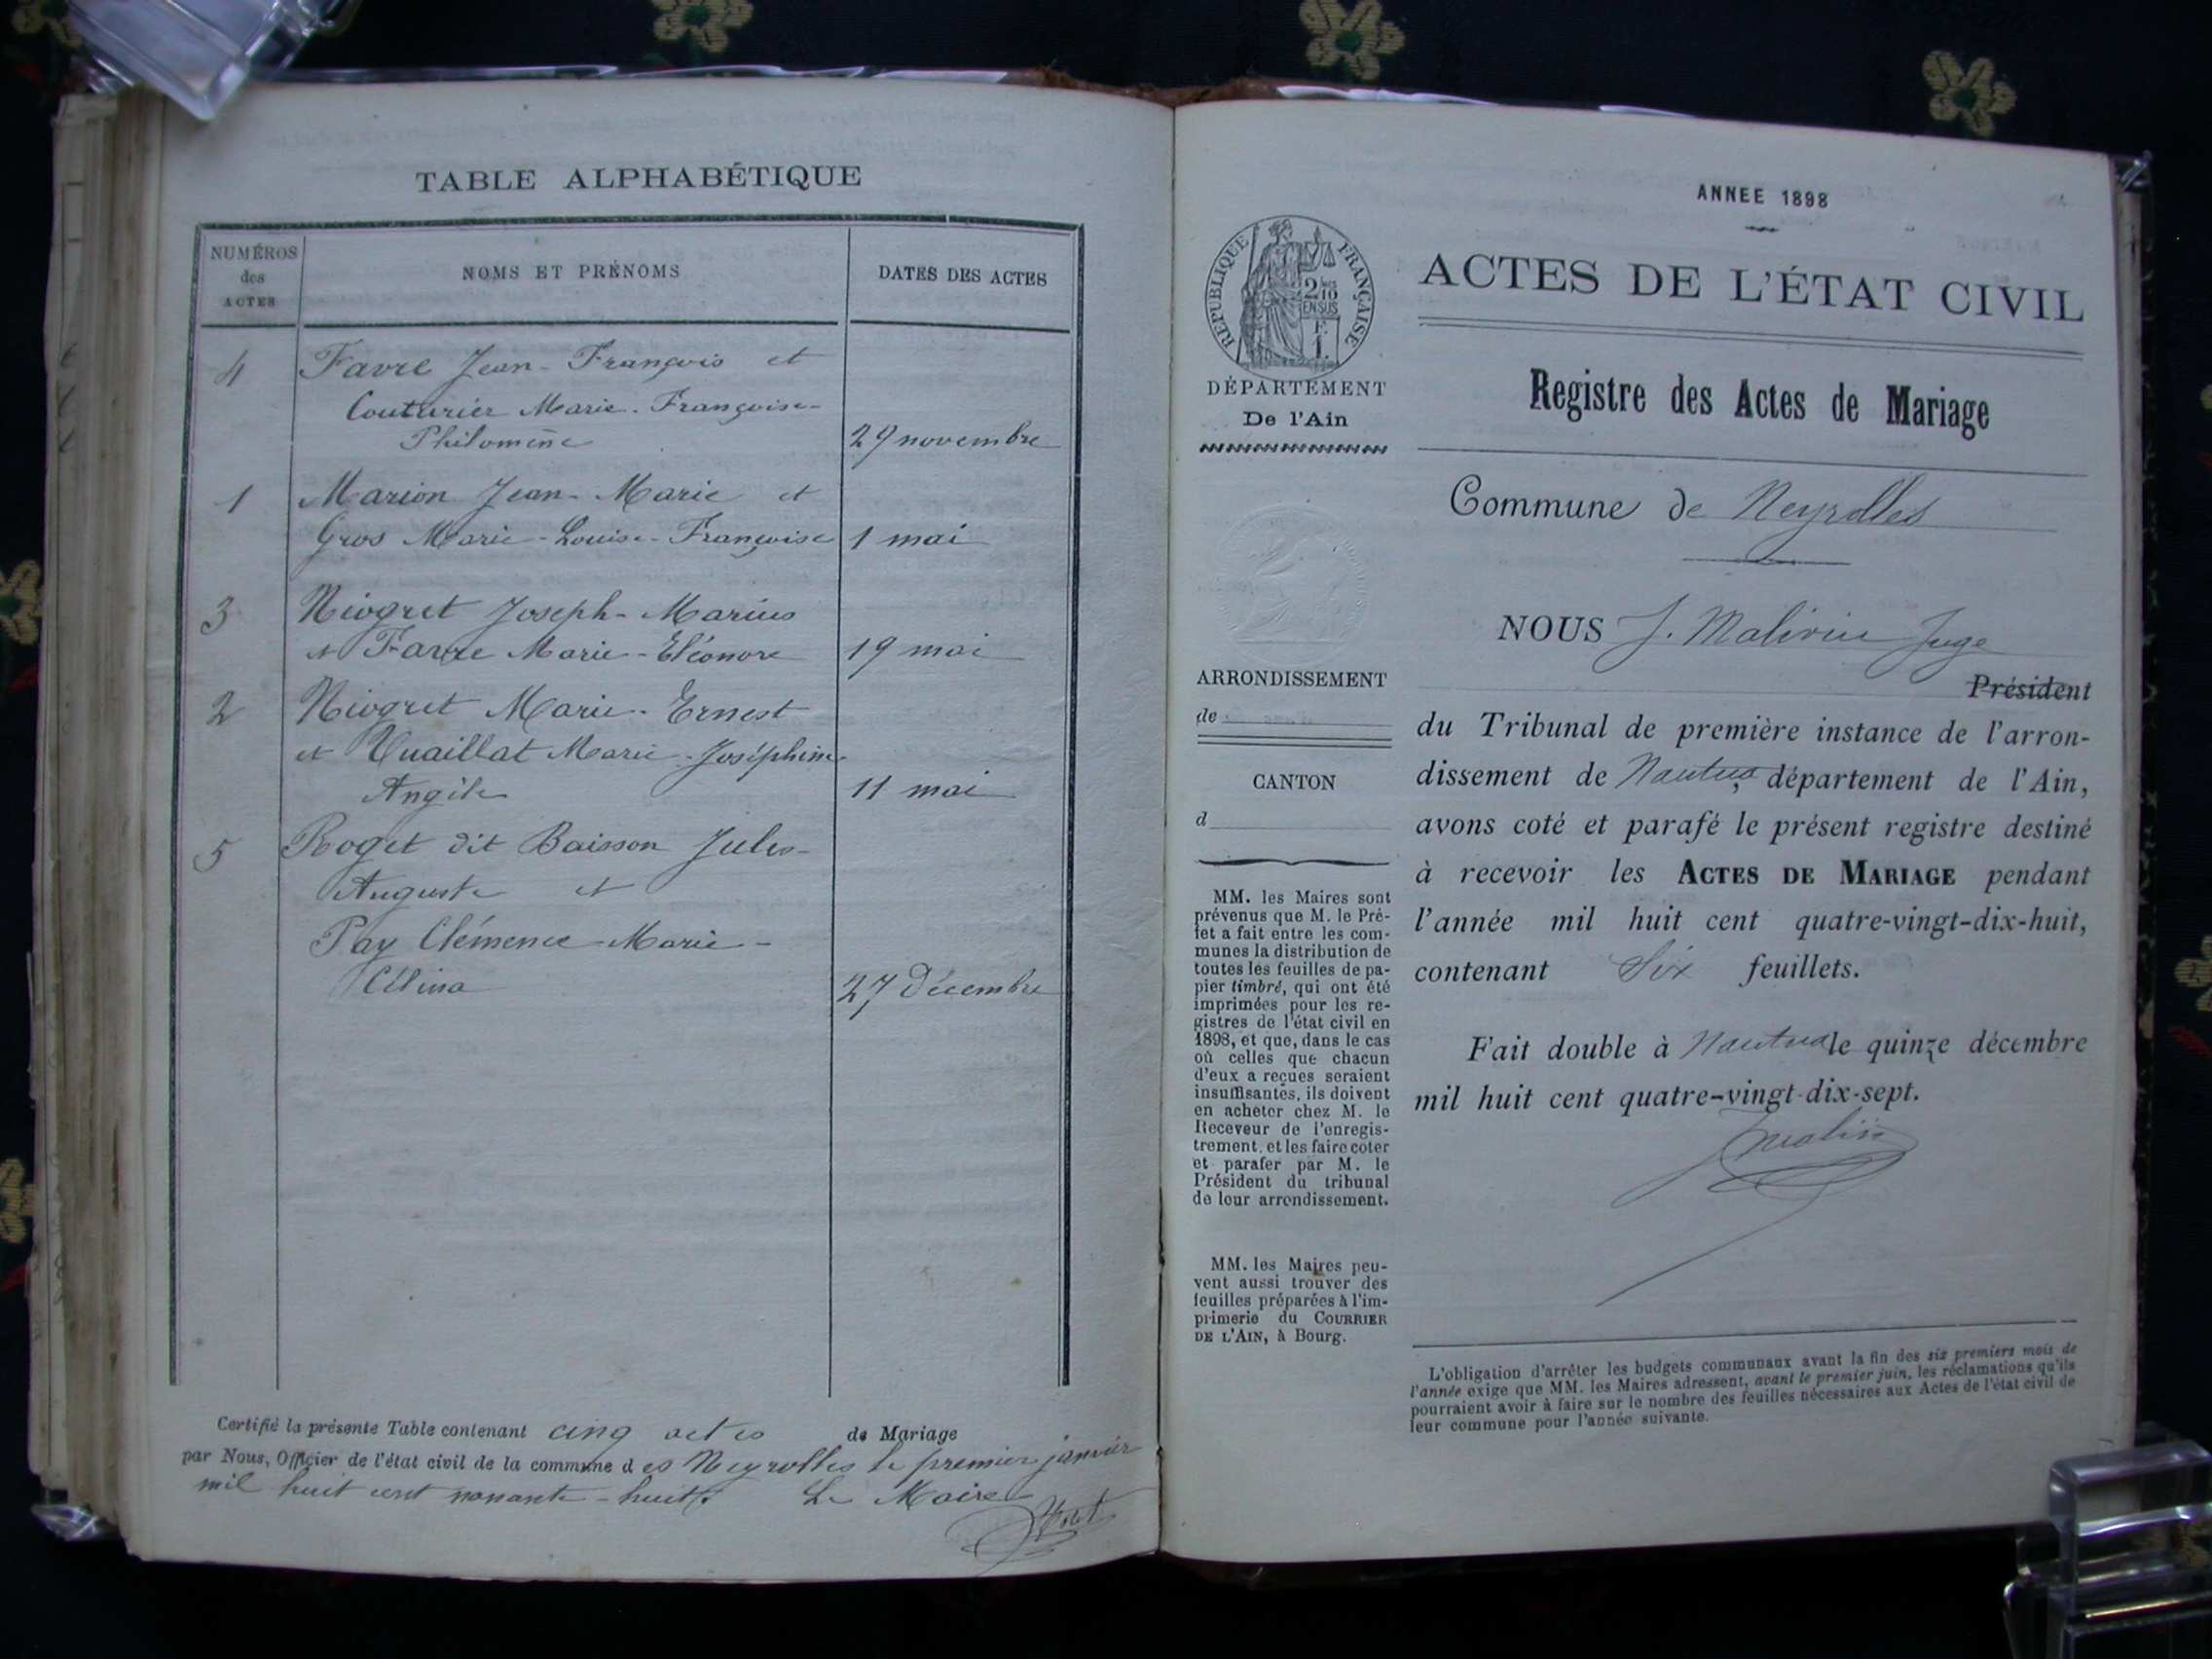 TABLE ALPHABÉTIQUE
NUMÉROS
des
ACTES
NOMS ET PRÉNOMS
DATES DES ACTES
4 Favre Jean-François et
Couturier Marie-Françoise-
Philomène 29 novembre
1 Marion Jean-Marie et
Gros Marie-Louise-Françoise 1 mai
3 Niogret Joseph-Marius
et Favre Marie-Eléonore 19 mai
2 Niogret Marie-Ernest
et Vuaillat Marie-Joséphine
Angèle 11 mai
5 Roget dit Baisson Jules-
Auguste et
Pay Clémence-Marie-
Célina 27 Décembre
Certifié la présente Table contenant cinq actes de Mariage
par Nous, Officier de l'état civil de la commune des Neyrolles le premier janvier
mil huit cent nonante-huit. Le Maire
ANNEE 1898
ACTES DE L'ÉTAT CIVIL
Registre des Actes de Mariage
REPUBLIQUE FRANÇAISE
2/10
EN SUS
F.
1.
DÉPARTEMENT
De l'Ain
Commune de Neyrolles
NOUS J. Juge
ARRONDISSEMENT
de
CANTON
d
Président
du Tribunal de première instance de l'arron-
dissement de Nantua, département de l'Ain,
avons coté et parafé le présent registre destiné
à recevoir les ACTES DE MARIAGE pendant
l'année mil huit cent quatre-vingt-dix-huit,
contenant Six feuillets.
Fait double à Nantua le quinze décembre
mil huit cent quatre-vingt-dix-sept.
MM. les Maires sont
prévenus que M. le Pré-
fet a fait entre les com-
munes la distribution de
toutes les feuilles de pa-
pier timbré, qui ont été
imprimées pour les re-
gistres de l'état civil en
1898, et que, dans le cas
où celles que chacun
d'eux a reçues seraient
insuffisantes, ils doivent
en acheter chez M. le
Receveur de l'enregis-
trement, et les faire coter
et parafer par M. le
Président du tribunal
de leur arrondissement.
MM. les Maires peu-
vent aussi trouver des
feuilles préparées à l'im-
primerie du COURRIER
DE L'AIN, à Bourg.
L'obligation d'arrêter les budgets communaux avant la fin des six premiers mois de
l'année exige que MM. les Maires adressent, avant le premier juin, les réclamations qu'ils
pourraient avoir à faire sur le nombre des feuilles nécessaires aux Actes de l'état civil de
leur commune pour l'année suivante.